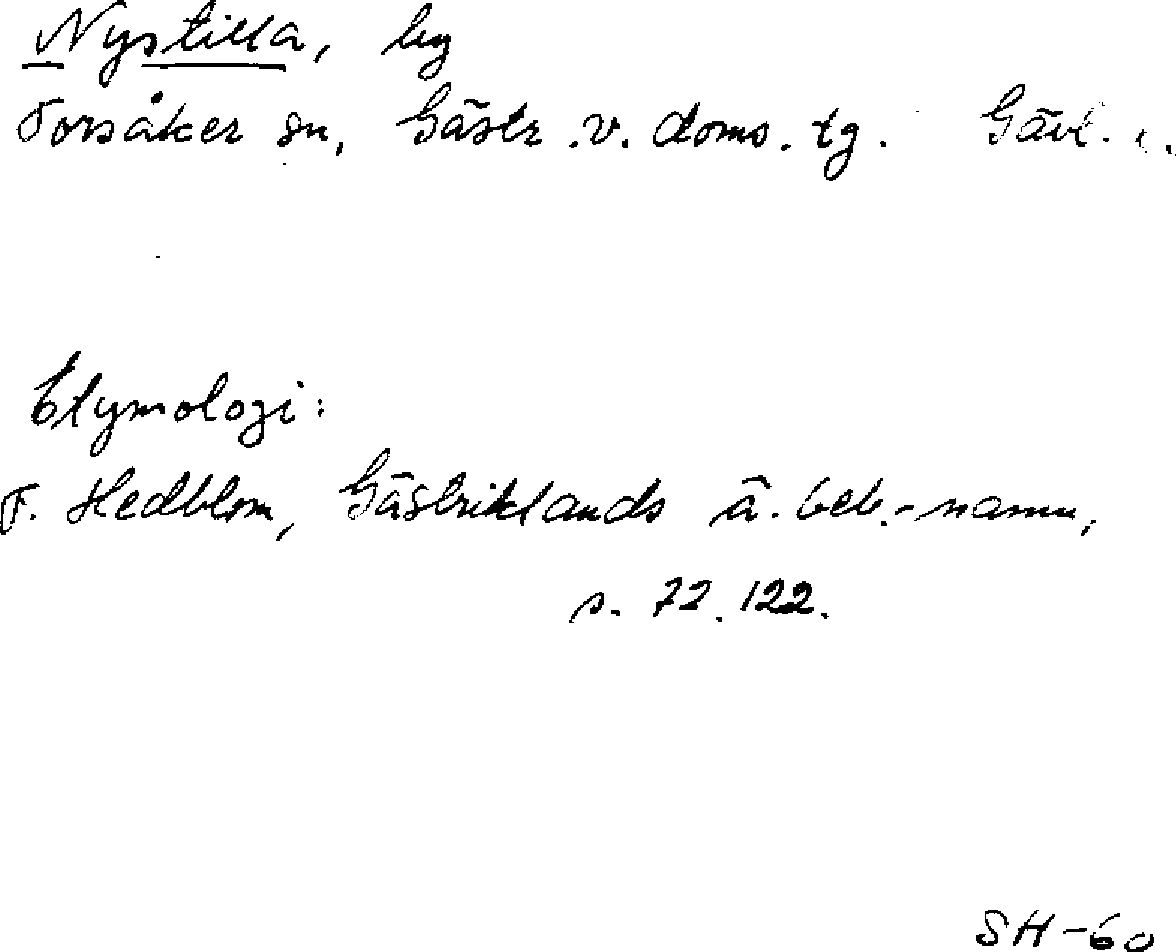 Nystilla, by
Torsåker sn, Gästr. v. doms. tg. Gävl. l.
Etymologi:
F. Hedblom, Gästriklands ä. beb.-namn,
s. 72. 122.
SH-60